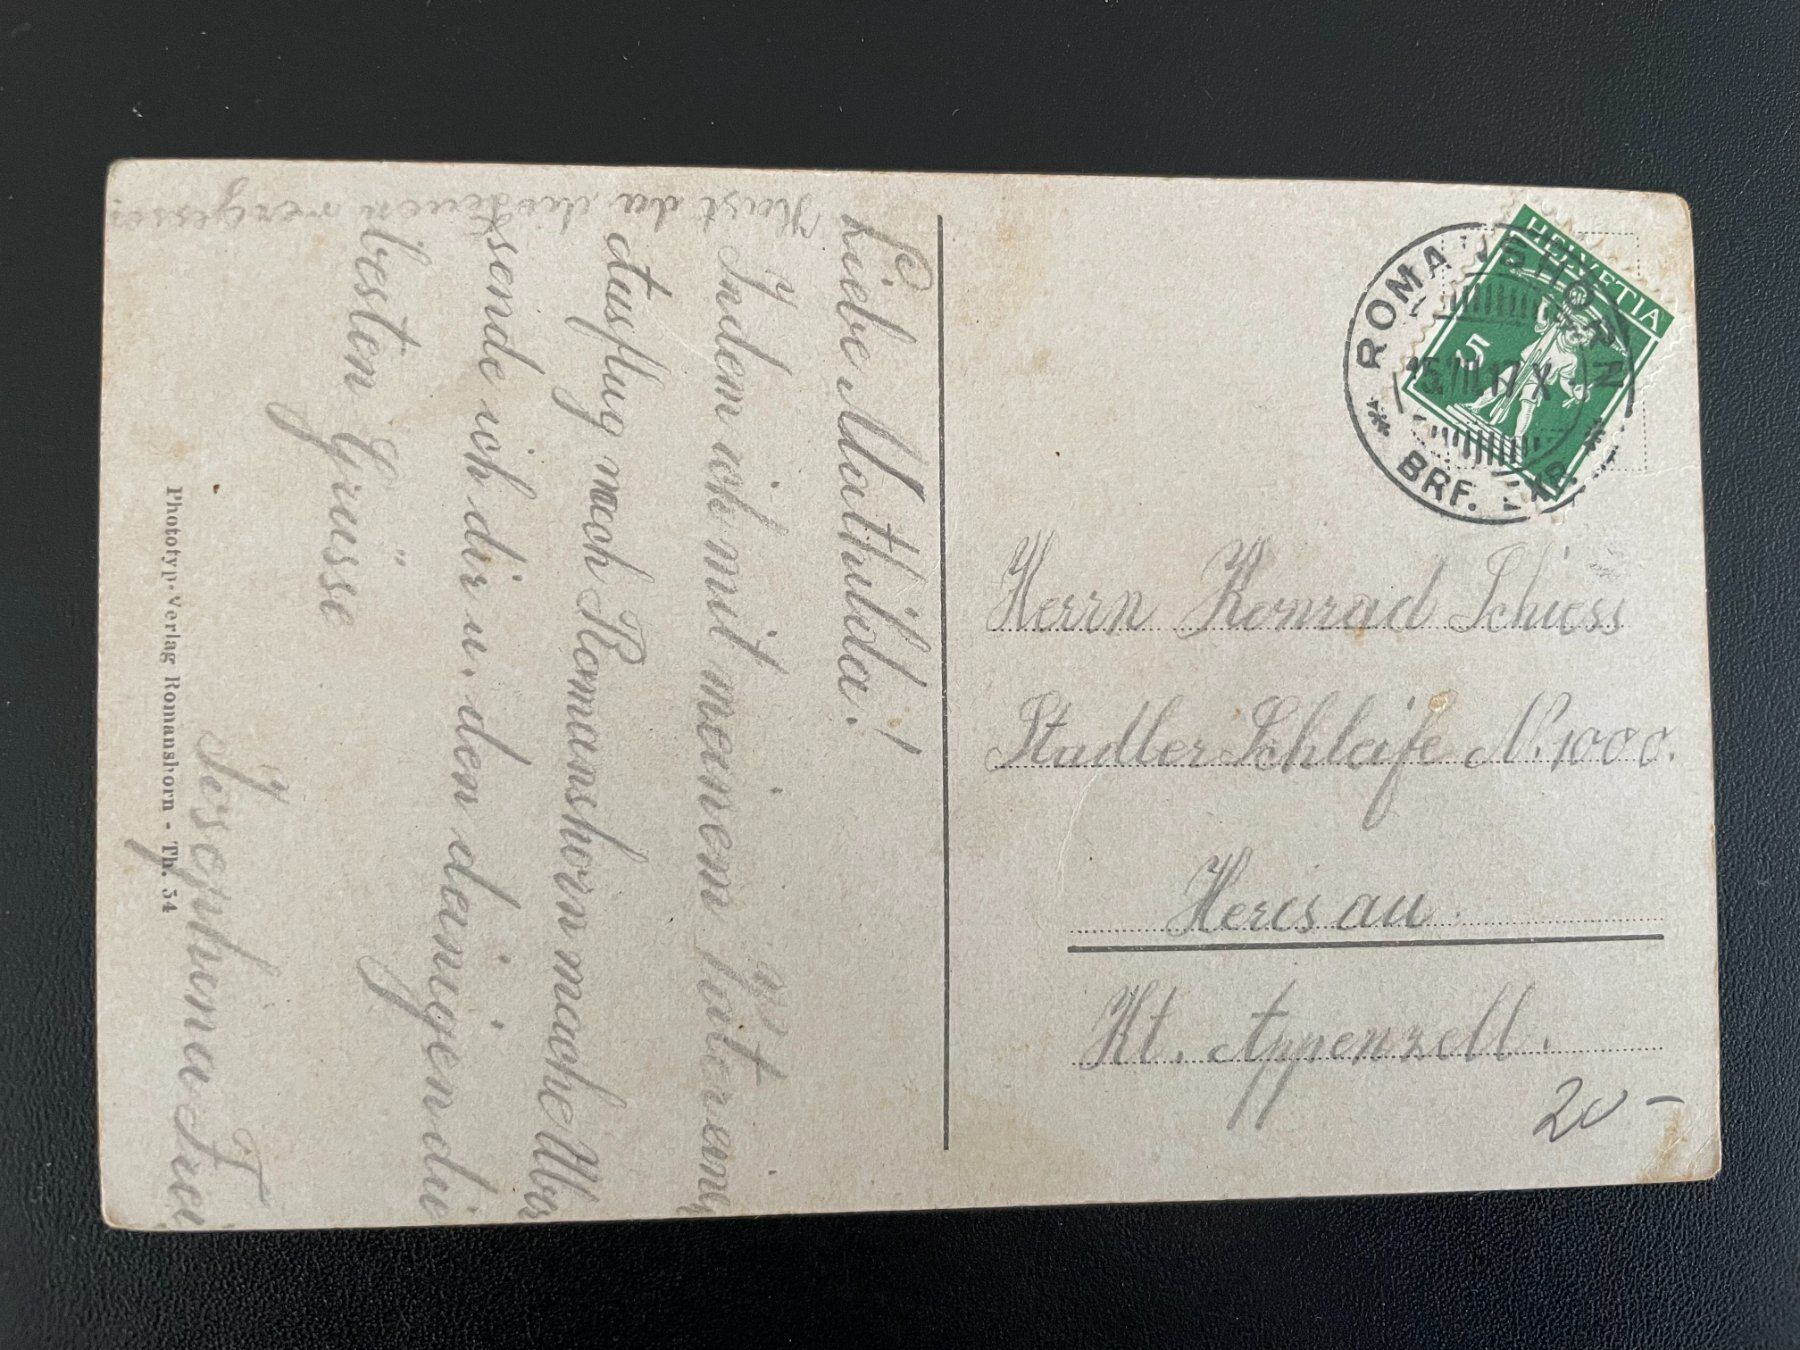 Liebe Mathilda!
Indem ich mit meinem
Ausflug nach Romanshorn mache
sende ich dir u. den dainigen die
besten Grüsse
Josephina Frei
Hast du die
Phototyp-Verlag Romanshorn - Th. 54
HELVETIA
5
ROMANSHORN
15.VIII.17.X
BRF. EXP.
Herrn Konrad Schiess
Stadler Schleife N. 1000.
Herisau.
Kt. Appenzell.
20-